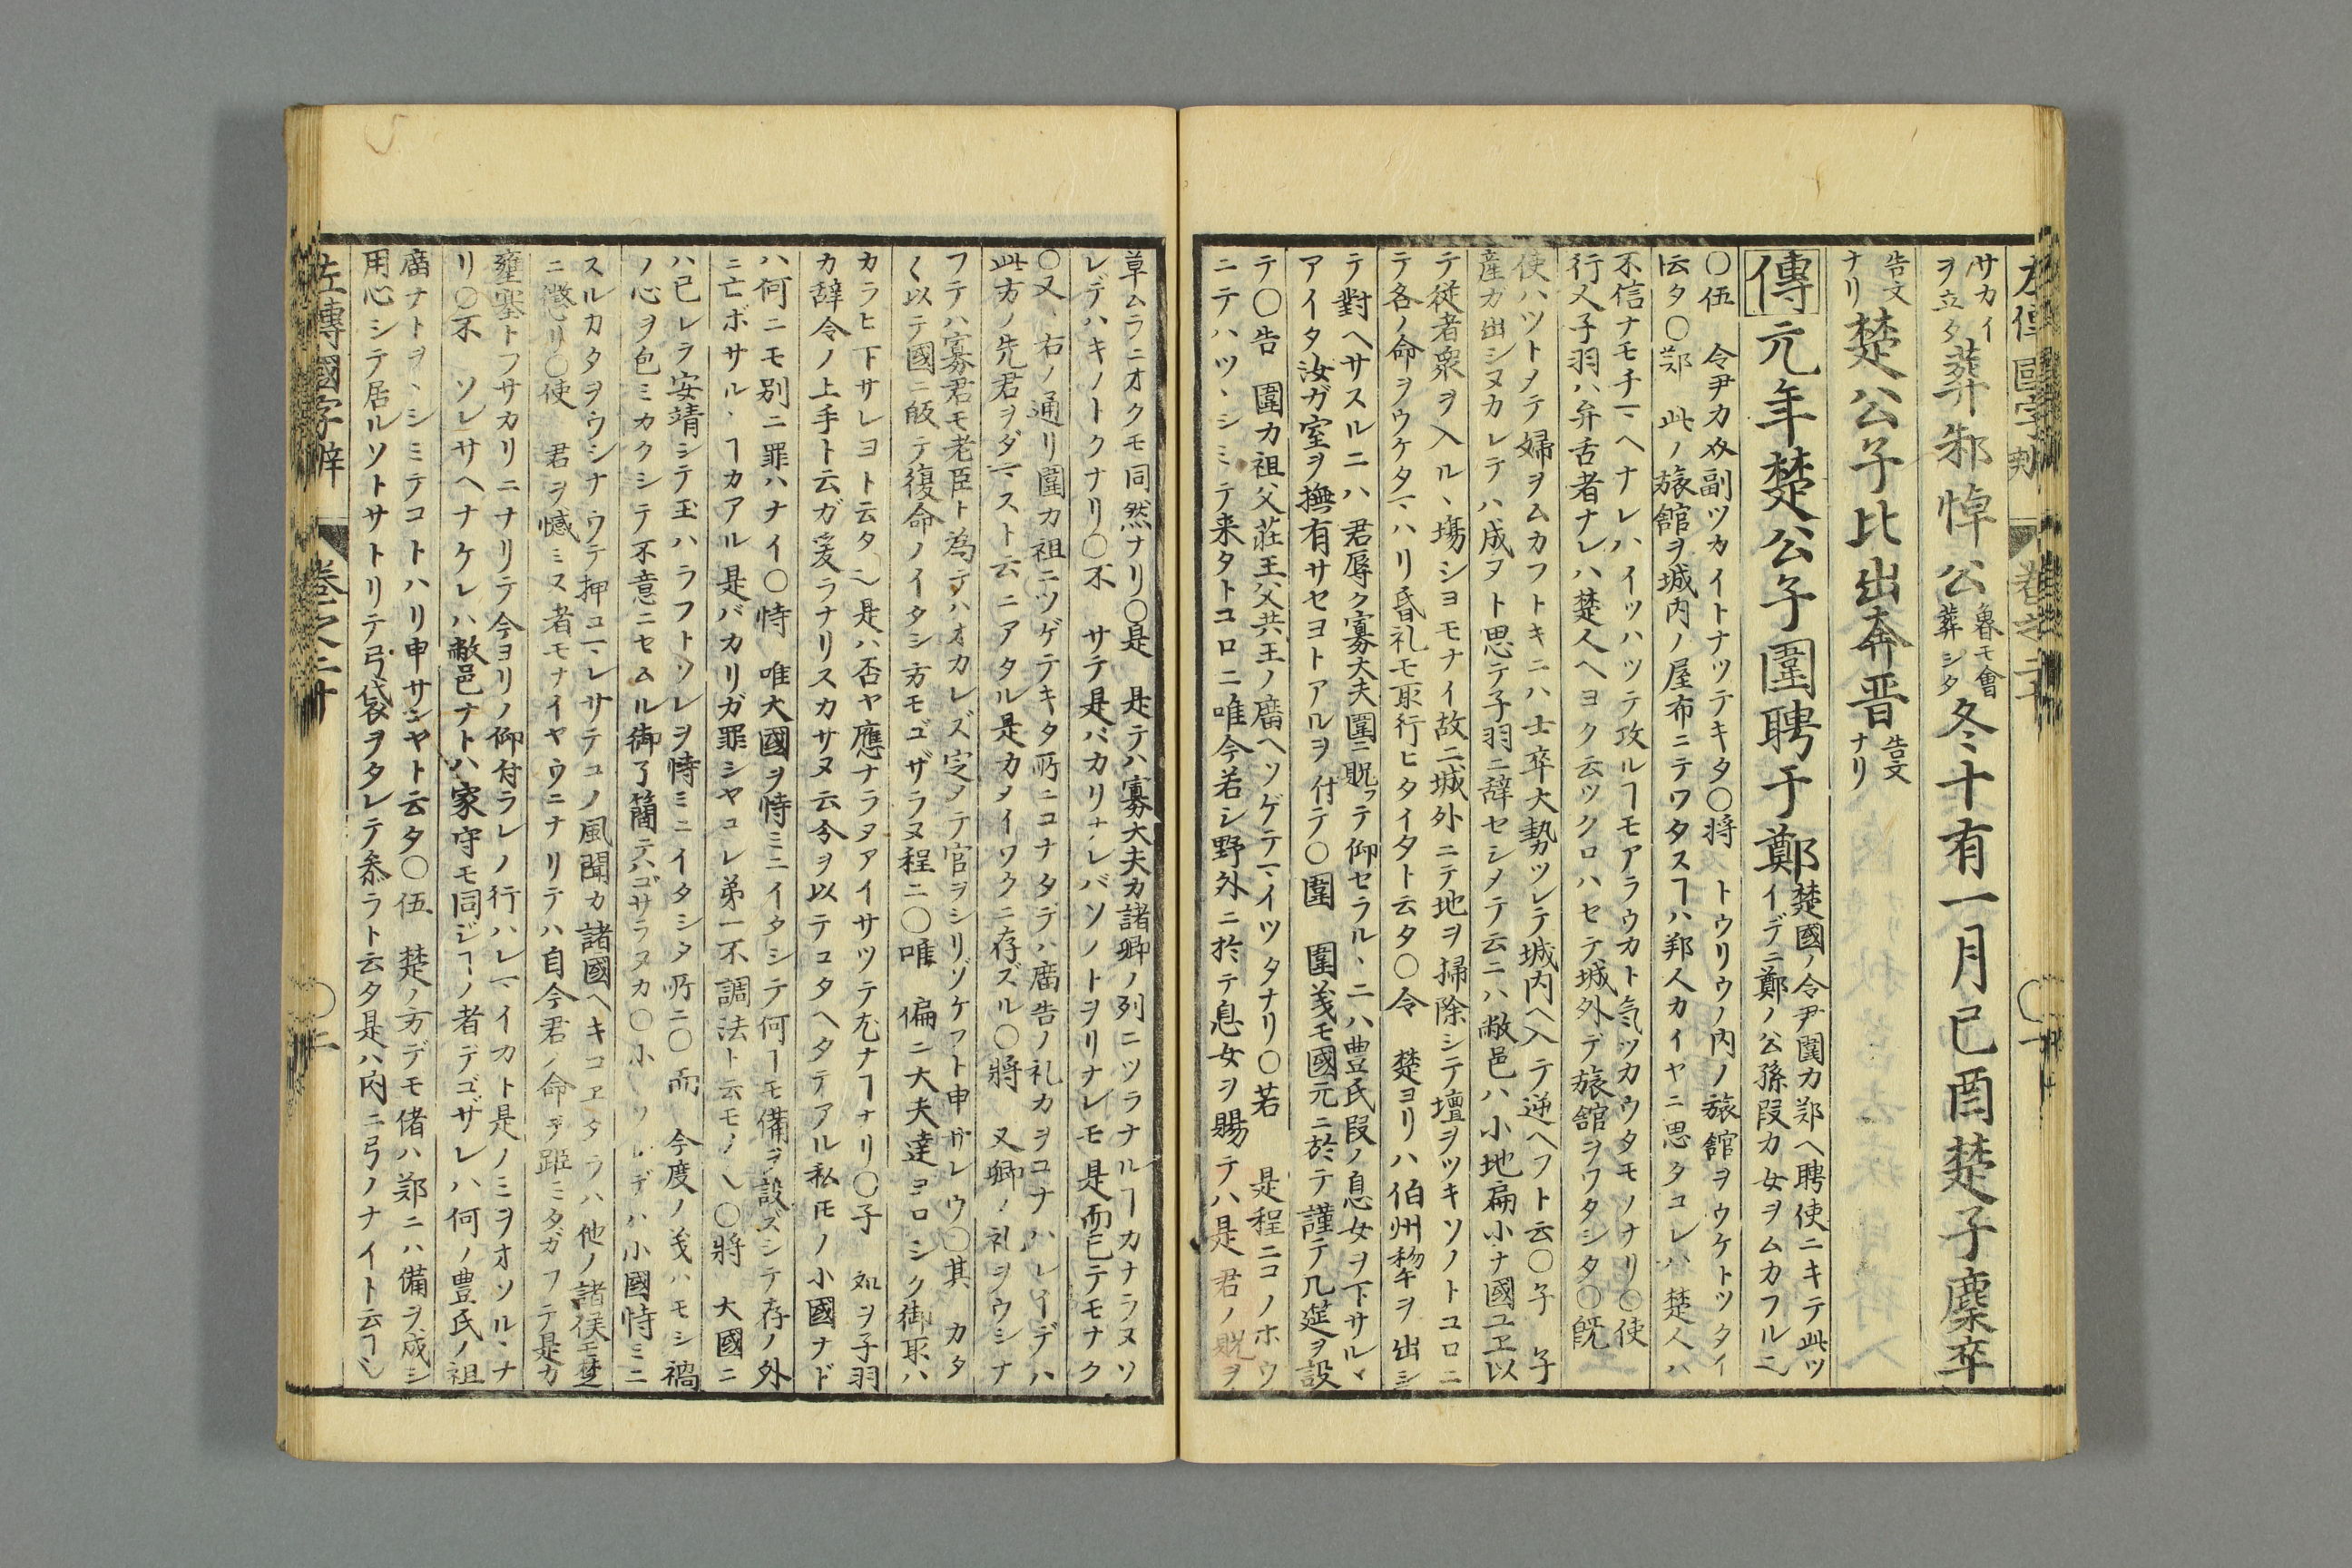 左傳國字辨 卷之二十 〇一
サカイ
ヲ立タ
葬邾悼公
魯モ會
葬シタ
冬十有一月已酉楚子麇卒
告文
ナリ
楚公子比出奔晋
告文
ナリ
傳元年楚公子圍聘于鄭
楚國ノ令尹圍カ郑ヘ聘使ニキテ此ツ
イデニ鄭ノ公孫段カ女ヲムカフル也
〇伍 令尹カ双副ツカイトナツテキタ〇将 トウリウノ内ノ旅舘ヲウケトツタイ
伝タ〇郑 此ノ旅舘ヲ城内ノ屋布ニテワタスヿハ郑人カイヤニ思タコレハ楚人ハ
不信ナモチマヘナレハイツハツテ攻ルヿモアラウカト気ツカウタモノナリ〇使
行人子羽ハ弁舌者ナレハ楚人ヘヨク云ツクロハセテ城外デ旅舘ヲワタシタ〇既
使ハツトメテ婦ヲムカフトキニハ士卒大勢ツレテ城内ヘ入テ逆ヘフト云〇子 子
産ガ出シヌカレテハ成ヌト思テ子羽ニ辞セシメテ云ニハ敝邑ハ小地扁小ナ國ユヱ以
テ従者衆ヲ入ル、塲シヨモナイ故ニ城外ニテ地ヲ掃除シテ壇ヲツキソノトコロニ
テ各ノ命ヲウケタマハリ昏礼モ取行ヒタイタト云タ〇令 楚ヨリハ伯州犂ヲ出シ
テ對ヘサスルニハ君辱ク寡大夫圍ニ貺ツテ仰セラル、ニハ豊氏段ノ息女ヲ下サル、
アイタ汝ガ室ヲ撫有サセヨトアルヲ付テ〇圍 圍義モ國元ニ於テ謹テ几筵ヲ設
テ〇告 圍カ祖父莊王父共王ノ廟ヘツゲテマイツタナリ〇若 是程ニコノホウ
ニテハツ、シミテ来タトコロニ唯今若シ野外ニ於テ息女ヲ賜テハ是君ノ貺ヲ
草ムラニオクモ同然ナリ〇是 是テハ寡大夫カ諸卿ノ列ニツラナルヿカナラヌソ
レデハキノトクナリ〇不 サテ是バカリナレバソノトヲリナレモ是而已テモナク
〇又、右ノ通リ圍カ祖ニツゲテキタ所ニコナタデハ廟告ノ礼カヲコナハレイデハ
此方ノ先君ヲダマスト云ニアタル是カメイワクニ存ズル〇將 又卿ノ礼ヲウシナ
フテハ寡君モ老臣ト為テハオカレズ定メテ官ヲシリゾケフト申サレウ〇其 カタ
〱以テ國ニ皈テ復命ノイタシ方モゴザラヌ程ニ〇唯 偏ニ大夫達ヨロシク御取ハ
カラヒ下サレヨト云タ〽是ハ否ヤ應ナラヌアイサツテ尤ナヿナリ〇子 処ヲ子羽
カ辞令ノ上手ト云ガ爰ラナリスカサヌ云分ヲ以テコタヘタテアル私モノ小國ナド
ハ何ニモ別ニ罪ハナイ〇恃 唯大國ヲ恃ミニイタシテ何ヿモ備ヲ設ズシテ存ノ外
ニ亡ボサル、ヿカアル是バカリガ罪シヤコレ第一不調法ト云モノ〽〇將 大國ニ
ハ已レラ安靖シテ玉ハラフトソレヲ恃ミニイタシタ所ニ〇而 今度ノ義ハモシ禍
ノ心ヲ包ミカクシテ不意ニセムル御了簡テハゴサラヌカ〇小 ソレデハ小國恃ミニ
スルカタヲウシナウテ押コマレサテコノ風聞カ諸國ヘキコヱタラハ他ノ諸侯モ楚
ニ懲リ〇使 君ヲ憾ミヌ者モナイヤウニナリテハ自今君ノ命ヲ距ミタガフテ是カ
壅塞トフサカリニナリテ今ヨリノ仰付ラレノ行ハレマイカト是ノミヲオソル、ナ
リ〇不 ソレサヘナケレハ敝邑ナトハ家守モ同ジヿノ者デゴザレハ何ノ豊氏ノ祖
廟ナトヲ、シミテコトハリ申サシヤト云タ〇伍 楚ノ方デモ偖ハ郑ニハ備ヲ成シ
用心シテ居ルソトサトリテ弓袋ヲタレテ参ラト云タ是ハ内ニ弓ノナイト云ヿ〽
左傳國字辨 卷之二十 〇二